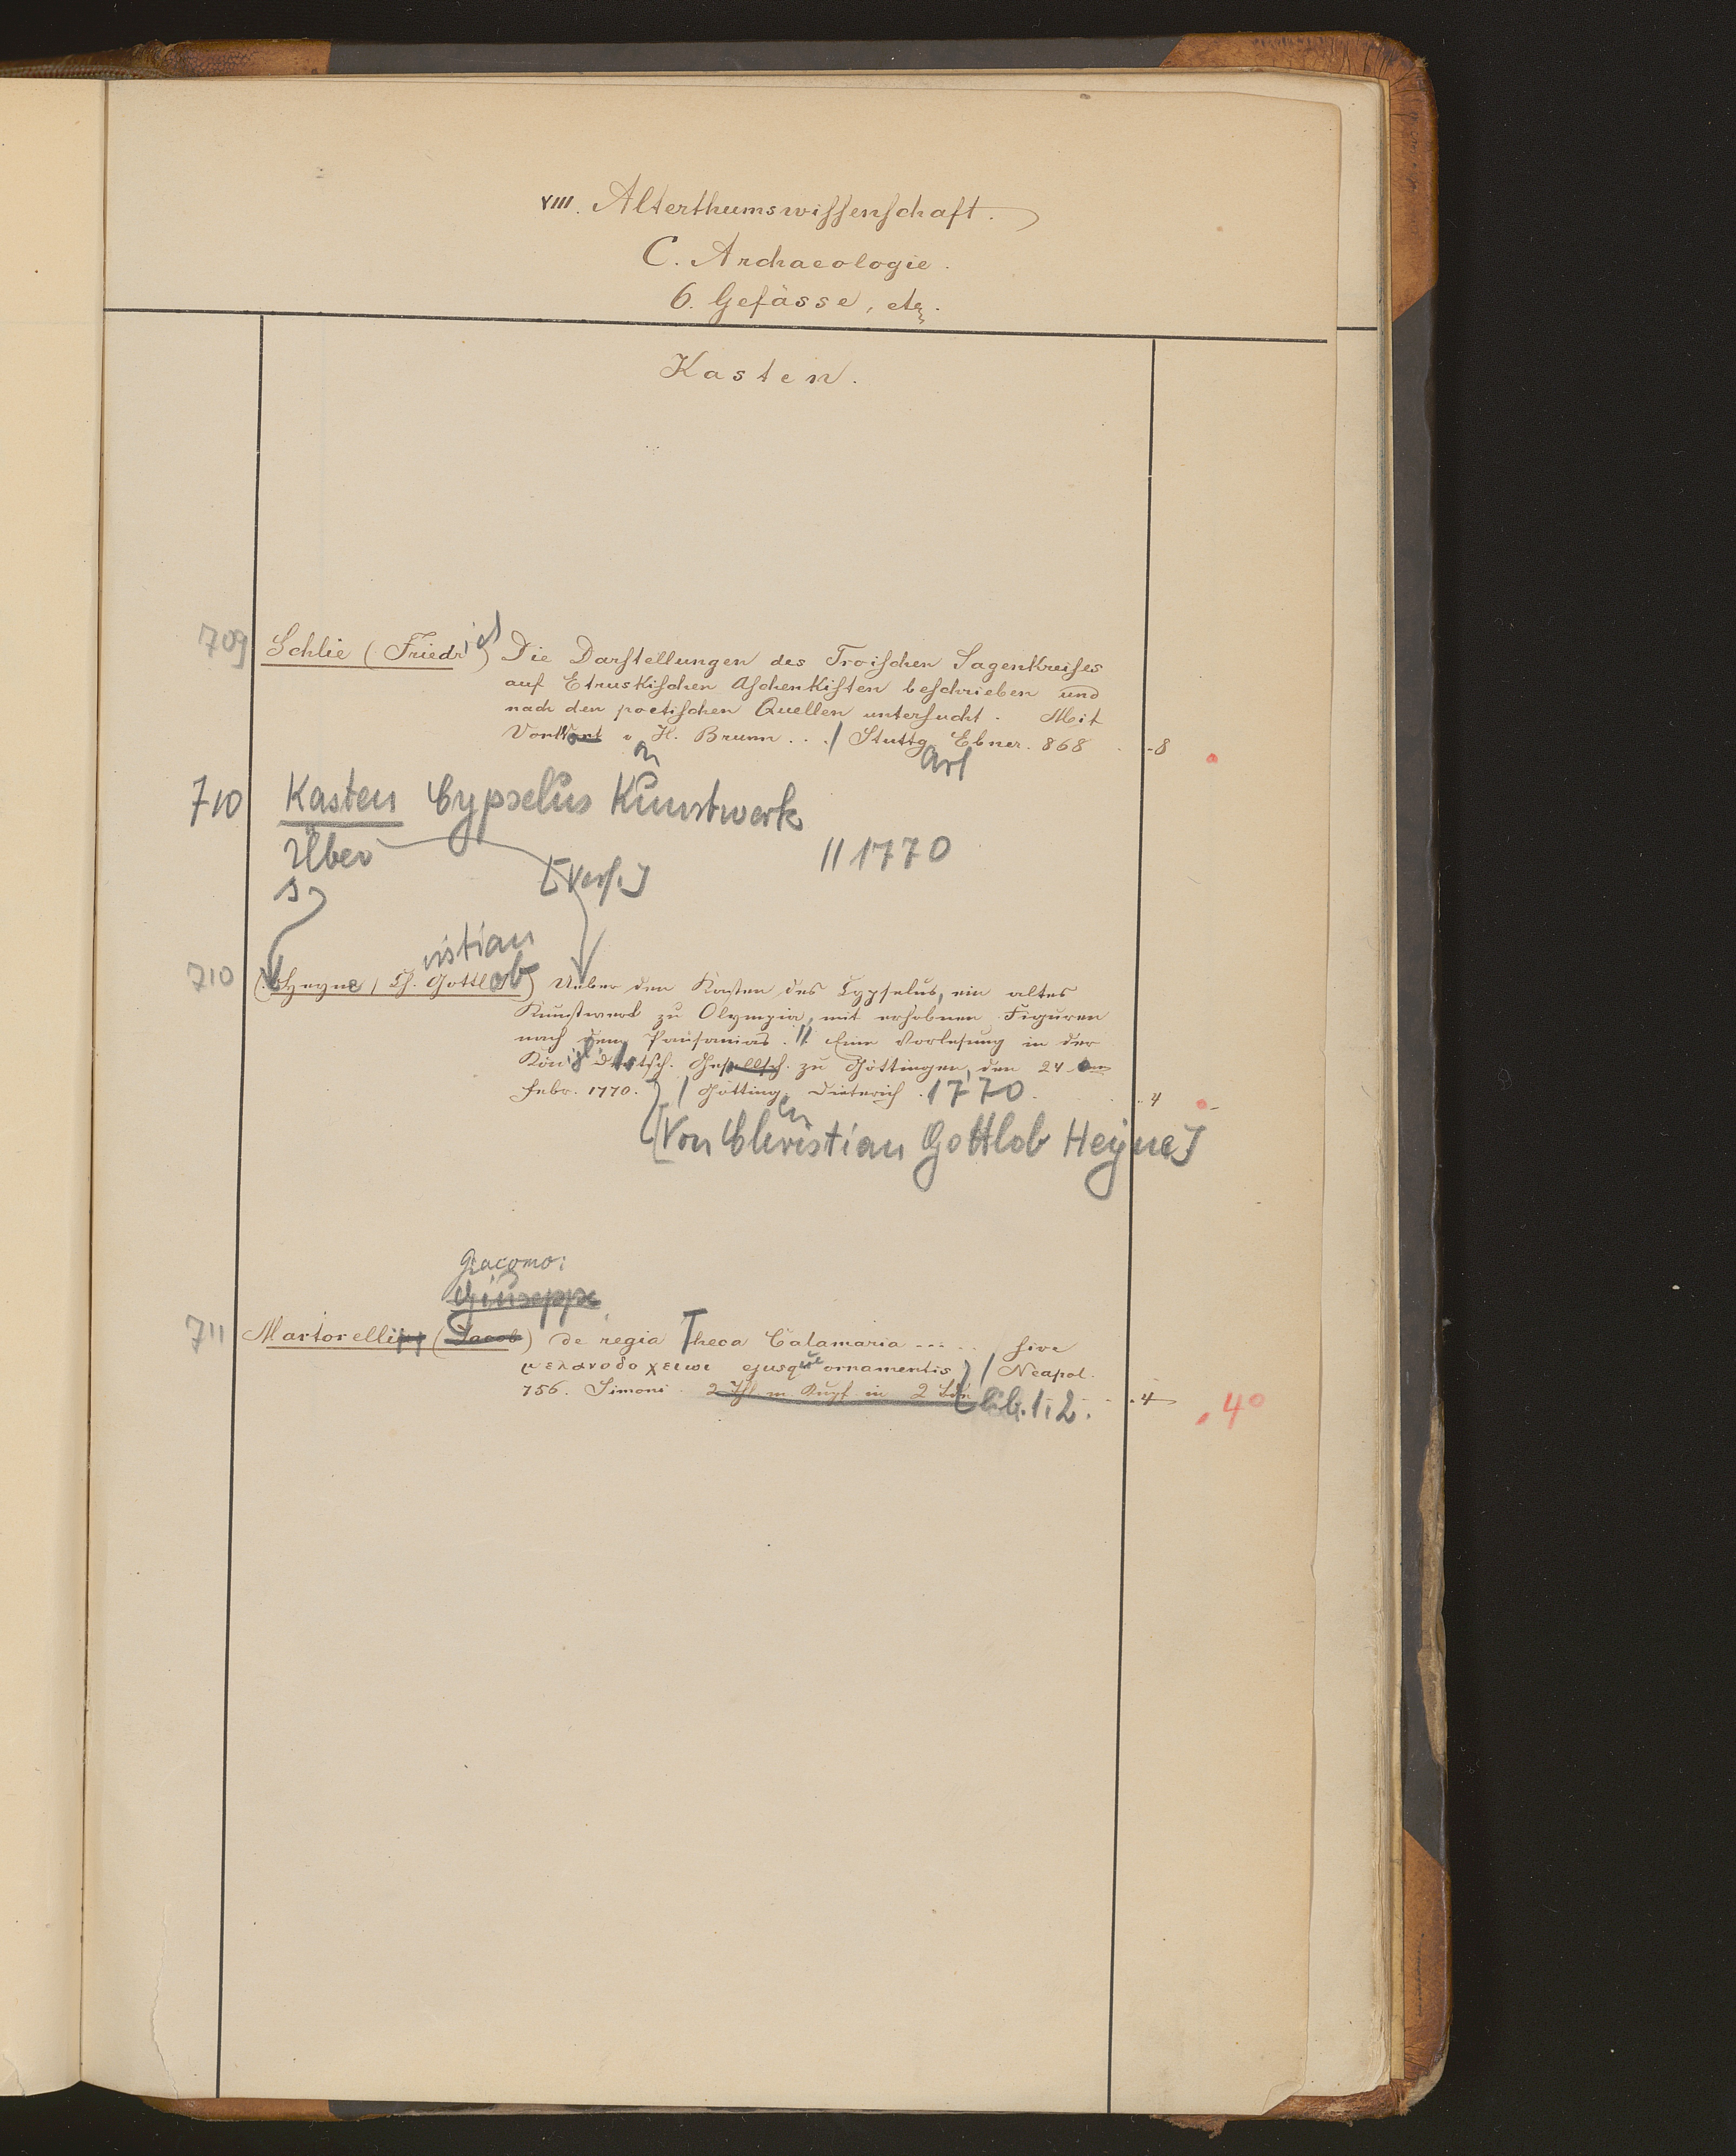 XIII. Alterthumswissenschaft.
C. Archaeologie.
6. Gefässe, etc.
Kasten.
709 Schlie (Friedrich) Die Darstellungen des Troischen Sagenkreises
auf Etruskischen Aschenkisten beschrieben und
nach den poetischen Quellen untersucht. Mit
Vorwort v. H. Brunn. . . / Stuttgart Ebner. 868 8
710 Kasten Cypselus Kunstwerk
Über || 1770
[Verf.]
s.
ristian
710 (Heyne, Ch. Gottlob) Ueber den Kasten des Cypselus, ein altes
Kunstwerk zu Olympia, mit erhobnen Figuren
nach dem Pausanias. || Eine Vorlesung in der
Königl. deutsch. Gesellsch. zu Göttingen, den 24
Febr. 1770. / Götting. Dieterich. 1770 4
en
[Von Christian Gottlob Heyne]
Giacomo:
Giuseppe
711 Martorellius (Jacob) de regia Theca Calamaria ..... sive
μελανοδοχειωι ejusque ornamentis / Neapol.
756. Simoni. 2 Thl. m. Kupf. in 2 Bdn lib. 1. 2. 4
4°